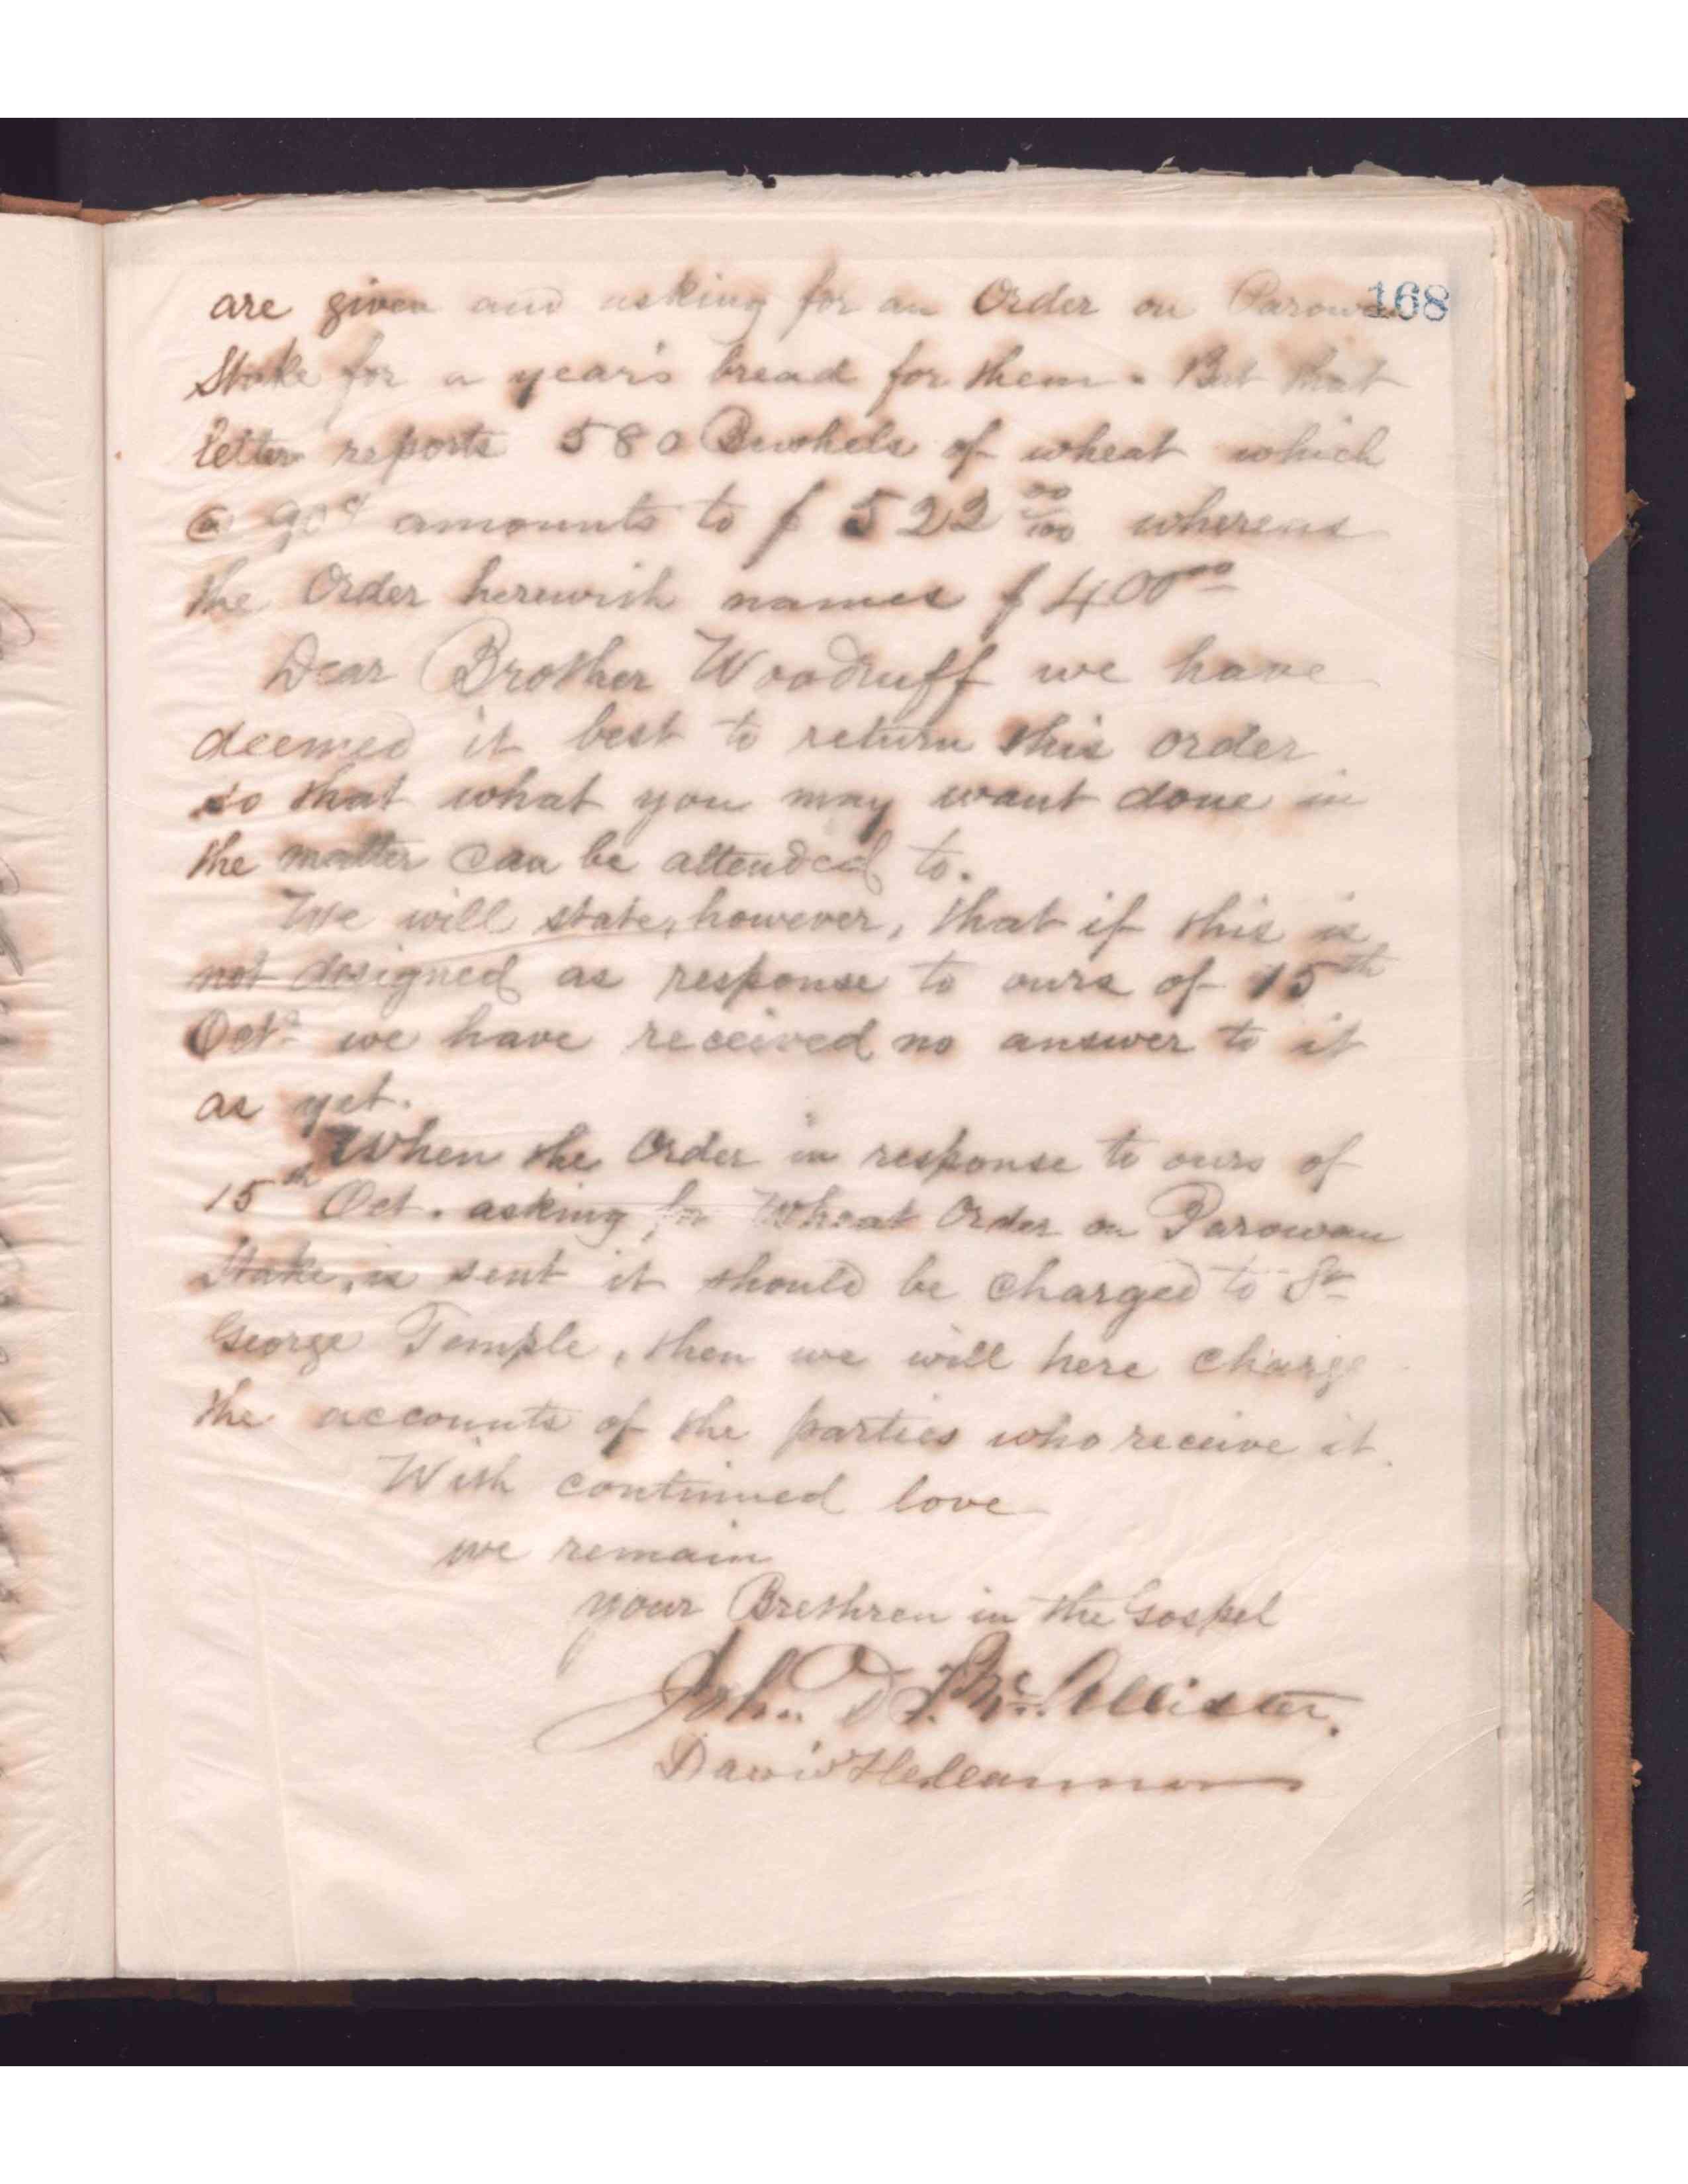 168
are given and asking for an Order on Parowan
Stake for a year's bread for them. But that
letter reports 580 Bushels of wheat which
@ 90¢ amounts to $522 00/100 whereas
the Order herewith names $400 00
Dear Brother Woodruff we have
deemed it best to return this order
so that what you may want done in
the matter can be attended to.
We will state, however, that if this is
not designed as response to ours of 15th
Oct. we have received no answer to it
as yet.
When the Order in response to ours of
15th Oct. asking for Wheat Order on Parowan
Stake, is sent it should be charged to St
George Temple, then we will here charge
the accounts of the parties who receive it.
With continued love
we remain
your Brethren in the Gospel
John D. T. McAllister.
David H. Cannon